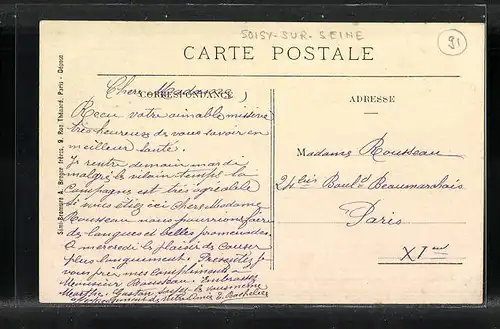 SOISY-SUR-SEINE
91
CARTE POSTALE
CORRESPONDANCE
ADRESSE
Chère Madame,
Reçu votre aimable missive
très heureuse de vous savoir en
meilleur santé.
Je rentre demain mardi
malgré le vilain temps la
campagne est très agréable
si vous étiez ici Chère Madame
Rousseau nous pourrions faire
de longues et belles promenades.
A mercredi le plaisir de causer
plus longuement. Présentez je
vous prie mes compliments à
Monsieur Rousseau. Embrassez
Marthe, Gaston
Madame Rousseau
24 bis Boul.d Beaumarchais
Paris
XI me
Simi-Bromure A. Breger Frères, 9, Rue Thénard, Paris - Déposé